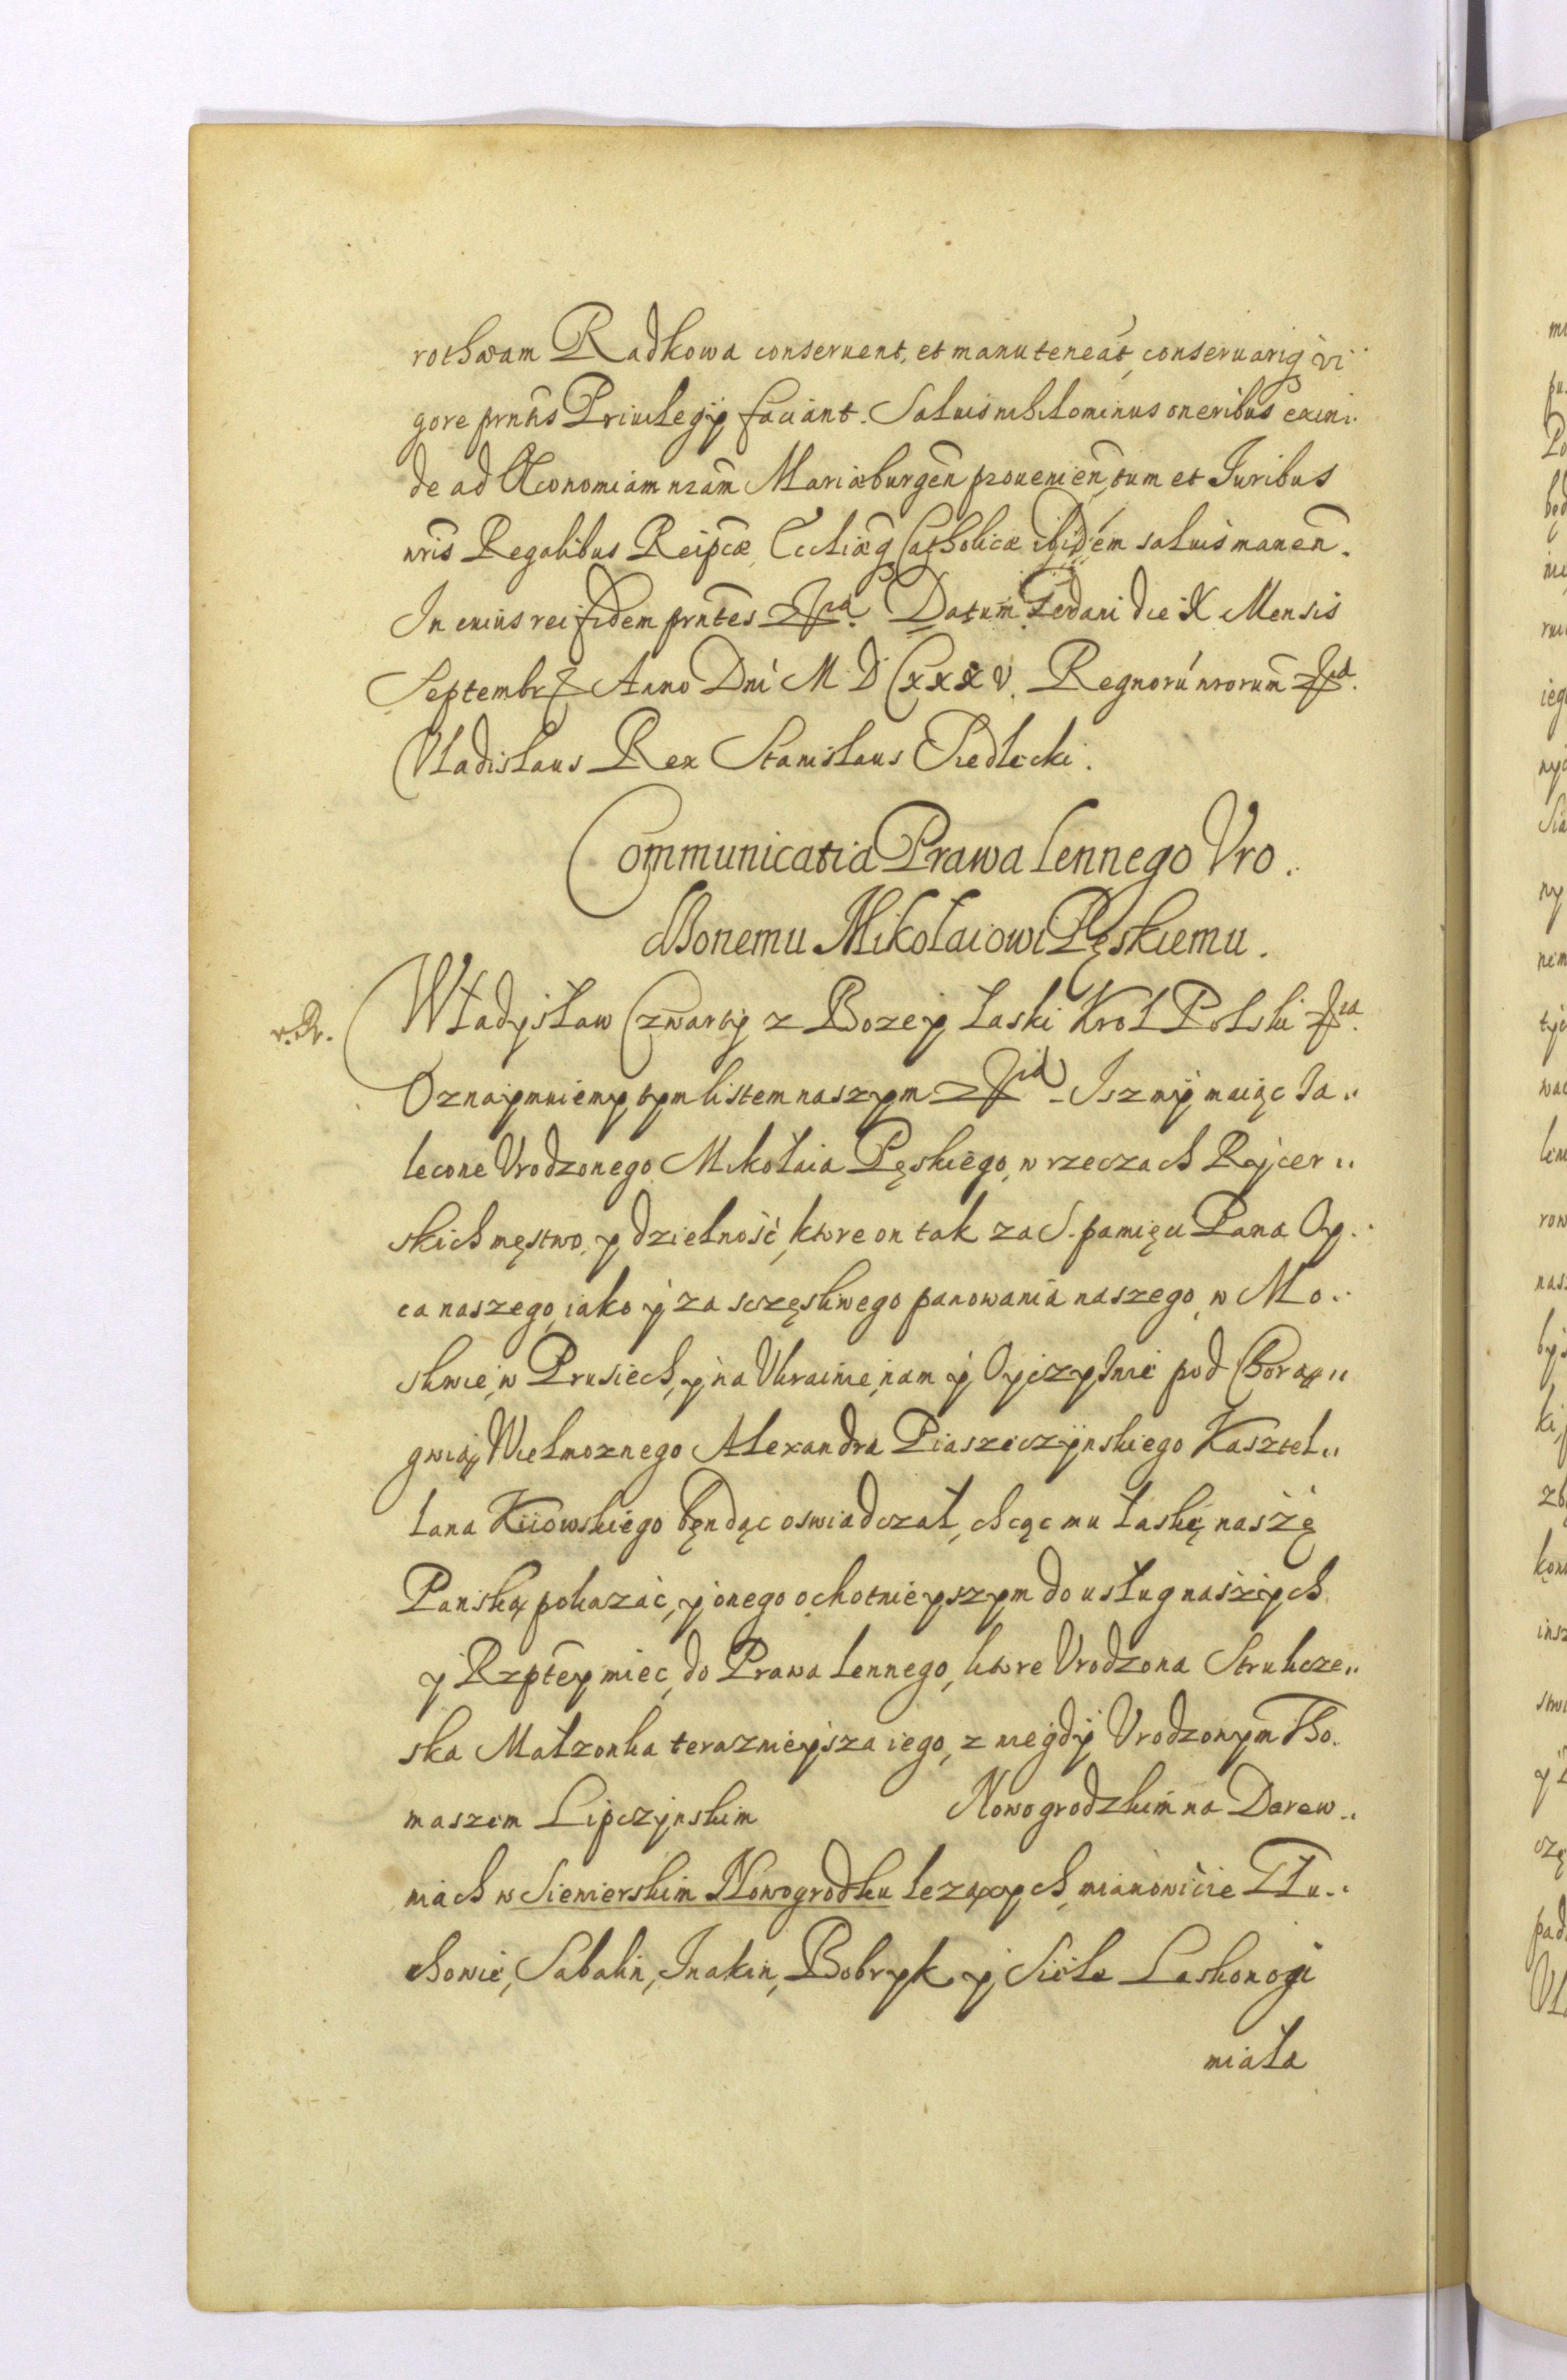 rotheam Radkowa conseruent, et manuteneāt, conseruariq; vi..
gore prn̄tis Priuilegÿ faciant. Saluis nihilominus oneribus exin..
de ad Œconomiam nrām Mariæburgeñ prouenieñ, tum et Iuribus
nrīs Regalibus Reipcæ, Eccliæq; Catholicæ ibidem saluis maneñ.
In cuius rei fidem prn̄tes Datum Gedani die X Mensis
Septembr Anno Dni M D C x x x V. Regnorú nrorum̄
Vladislaus Rex Stanislaus Siedlecki.
Communicatia Prawa lennego Vro.
dzonemu Mikołaiowi Pęskiemu.
Władysław Czwarty z Bozey łaski Krol Polski
Oznaymuiemy tym listem naszym Isz my maiąc Za..
lecone Vrodzonego Mikołaia Pęskiego, w rzeczach Rycer..
skich męstwo, y dzielność, ktore on tak za S. pamięci Pana Oy..
ca naszego, iako y za sczęsliwego panowania naszego, w Mo..
skwie, w Prusiech, y na Ukrainie, nam y Oyczyźnie pod Chorą..
gwią Wielmoznego Alexandra Piaseczynskiego Kasztel..
lana Kiiowskiego będąc oswiadczał, chcąc mu łaskę naszę
Panską pokazać, y onego ochotnieyszym do usług naszych
y Rzptey miec, do Prawa lennego, ktore Vrodzona Strukcze..
ska Małzonka teraznieysza iego, z niegdy Vrodzonym Tho.
maszem Lipczynskim Nowogrodzkim na Derew..
niach w Siewierskim Nowogrodku lezących, mianowicie Tłu..
chowie, Sabalin, Inakin, Bobryk y Sioła Laskonogi
miała